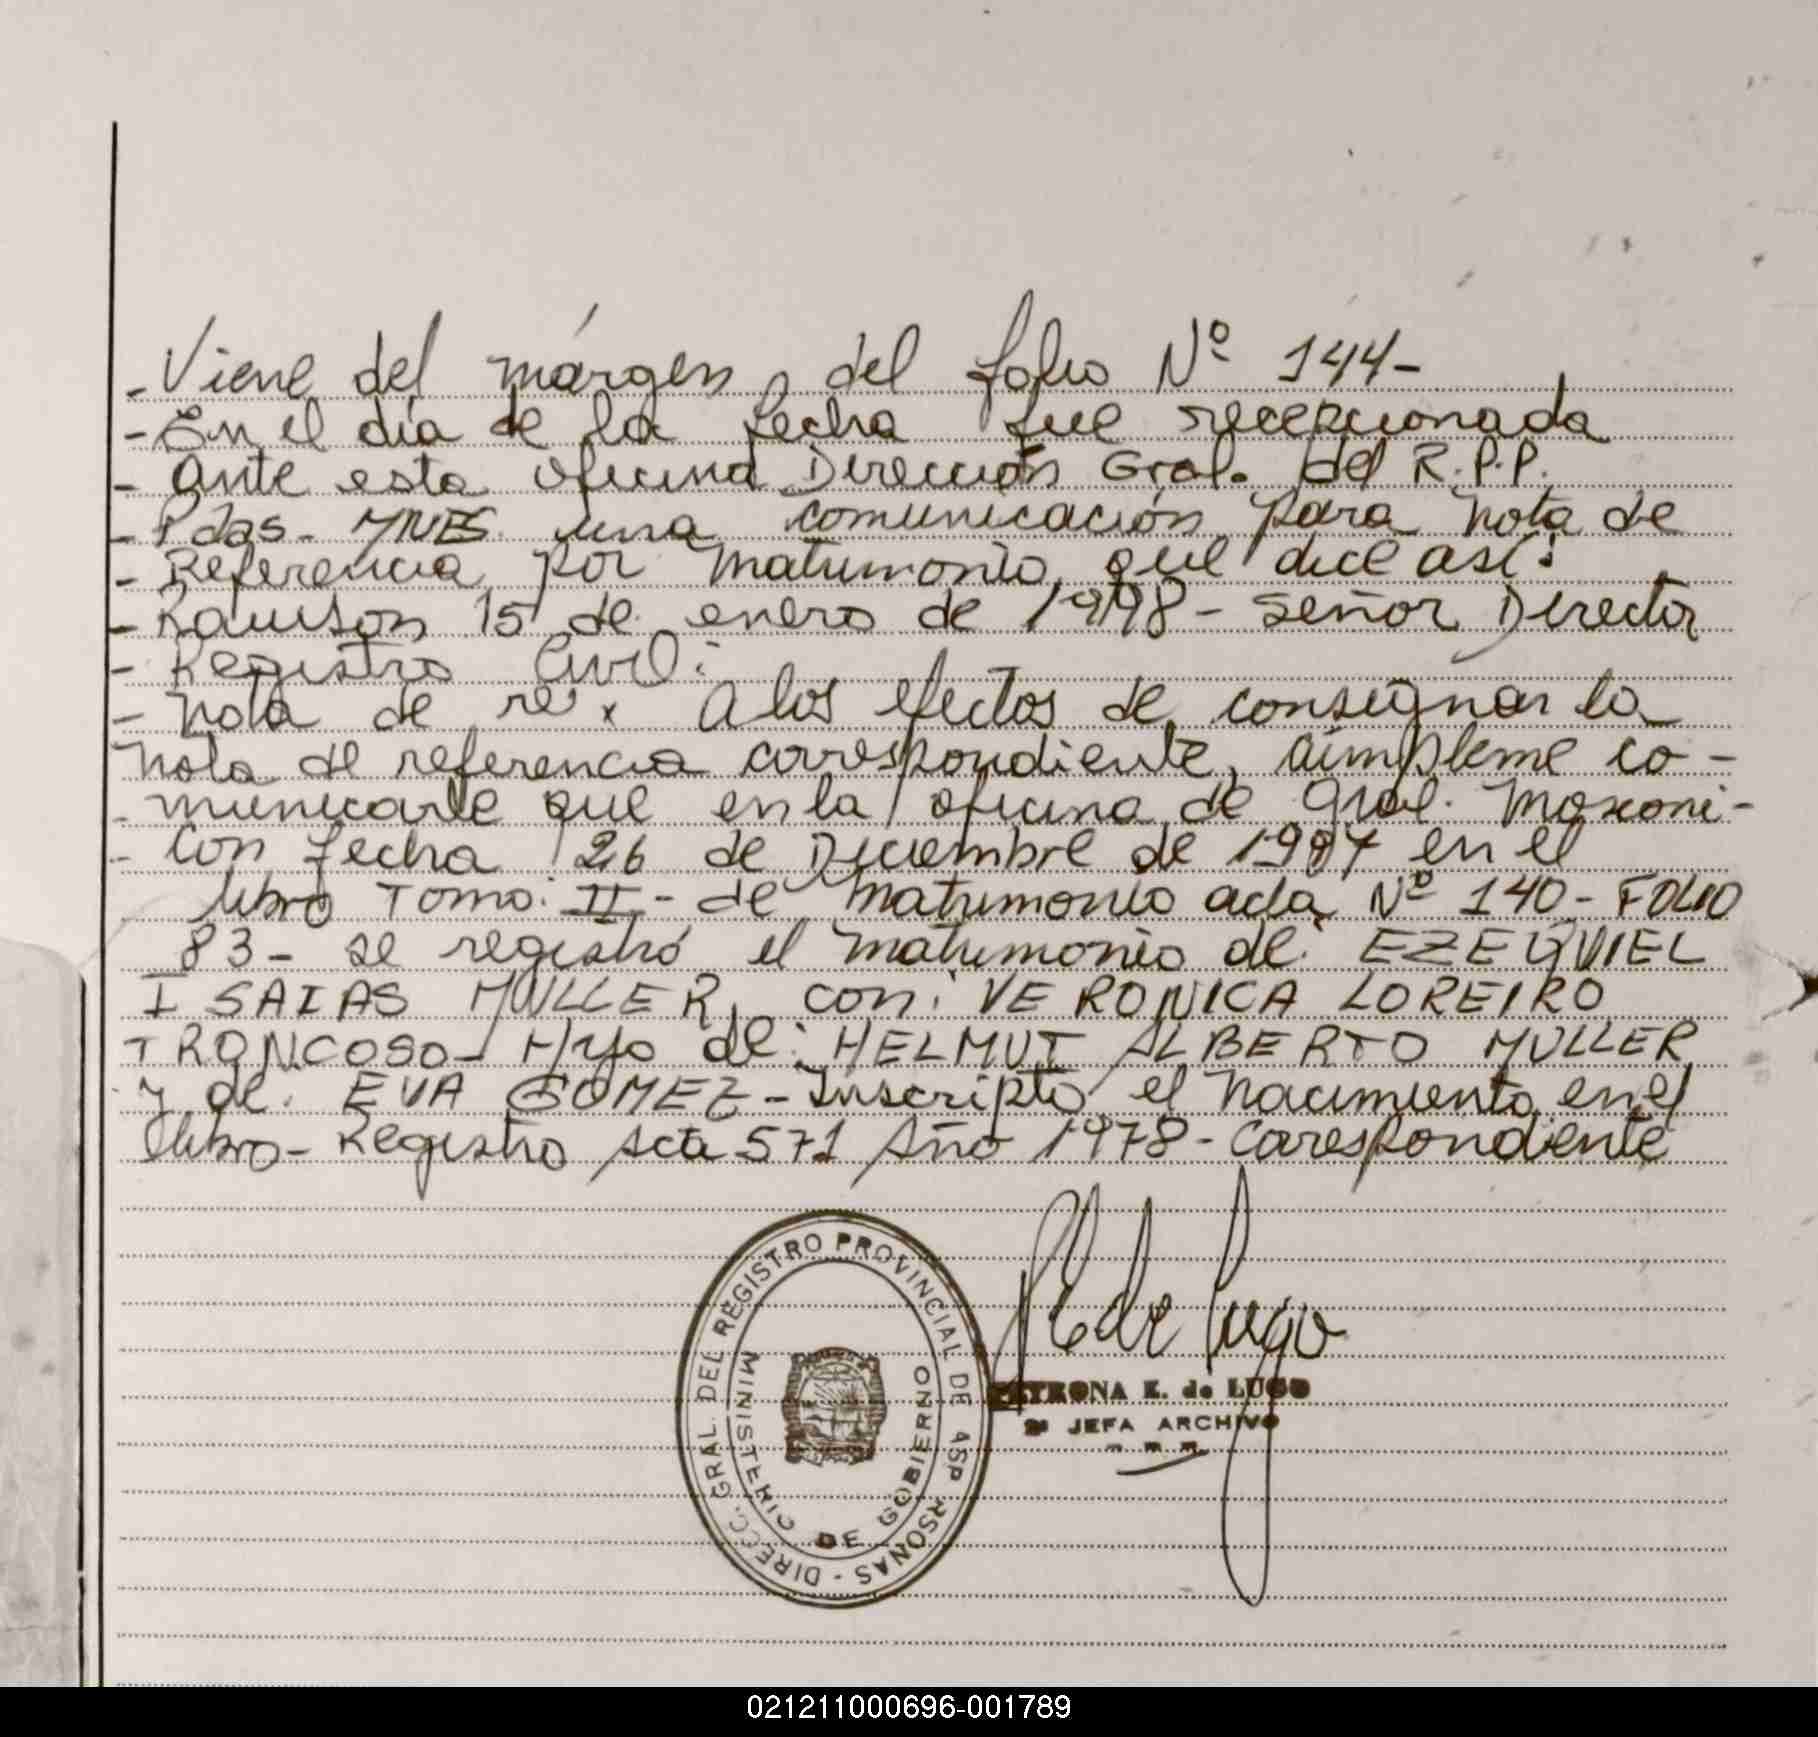 - Viene del márgen del folio Nº 144-
- En el día de la fecha fue recepcionada
- ante esta oficina Dirección Gral. del R.P.P.
- Pdas- una comunicación para nota de
- Referencia por matrimonio, que dice así:
- Rawson 15 de enero de 1998 - Señor Director
- Registro Civil:
- Nota de re x A los efectos de consignar la
nota de referencia correspondiente, cúmpleme co-
- municarle que en la oficina de Gral. Mosconi-
- con fecha 26 de Diciembre de 1997 en el
libro Tomo: II - de matrimonio acta Nº 140 - FOLIO
83 - se registró el matrimonio de: EZEQUIEL
ISAIAS MULLER, con: VERONICA LOREIRO
TRONCOSO - Hijo de: HELMUT ALBERTO MULLER
y de: EVA GOMEZ - Inscripto el nacimiento en el
libro - Registro Acta 571 Año 1978 - Corespondiente
DIRECC. GRAL. DEL REGISTRO PROVINCIAL DE ASP RSONAS -
MINISTERIO DE GOBIERNO
P E de Lugo
PETRONA E. de LUGO
2ª JEFA ARCHIVO
021211000696-001789